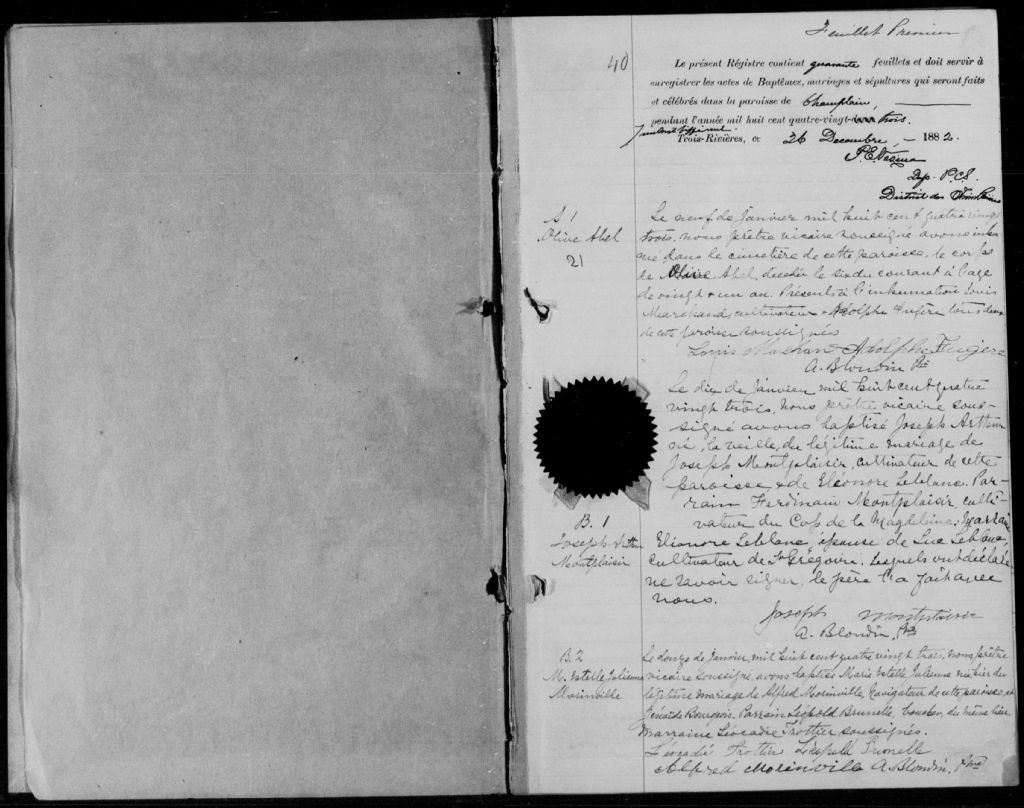 Feuillet Premier
40
Le présent Régistre contient quarante feuillets et doit servir à
enregistrer les actes de Baptêmes, mariages et sépultures qui seront faits
et célébrés dans la paroisse de Champlain,
pendant l'année mil huit cent quatre-vingt- trois.
Trois-Rivières, ce 26 Decembre, 1882.
Dep. P.C.S.
District des Trois Rivières
S. 1
Olive Abel
21
Le neuf de janvier mil huit cent quatre vingt
trois, nous prêtre vicaire soussigné avons inhu
mé dans le cimetière de cette paroisse, le corps
de Olive Abel, décédée le six du courant à l'age
de vingt & un an. Présents à l'inhumation Louis
Marchand, cultivateur & Adolphe Fugère tous deux
de cette paroisse soussignés
Louis Marchan Adolphe Fugere
A. Blondin Ptre
B. 1
Joseph Arthur
Montplaisir
Le dix de janvier mil huit cent quatre
vingt trois, nous prêtre vicaire sous-
signé avons baptisé Joseph Arthur
né la veille, du légitime mariage de
Joseph Montplaisir, cultivateur de cette
paroisse & de Eléonore Leblanc. Par-
rain Ferdinand Montplaisir, culti-
vateur du Cap de la Magdeleine; Marraine
Eléonore Leblanc épouse de Luc Leblanc,
cultivateur de St Grégoire. Lesquels ont déclaré
ne savoir signer, le père l'a fait avec
nous.
Joseph Montplaisir
A. Blondin, Ptre
B. 2
M. Estelle Julienne
Morinville
Le douze de janvier, mil huit cent quatre vingt trois, nous prêtre
vicaire soussigné, avons baptisé Marie Estelle Julienne née hier du
légitime mariage de Alfred Morinville, navigateur de cette paroisse, et
de Bourgeois. Parrain Léopold Brunelle, boucher, du même lieu
Marraine Léocadie Trottier soussignés.
Léocadie Trottier Léopold Brunelle
Alfred Morinville A. Blondin, Ptre